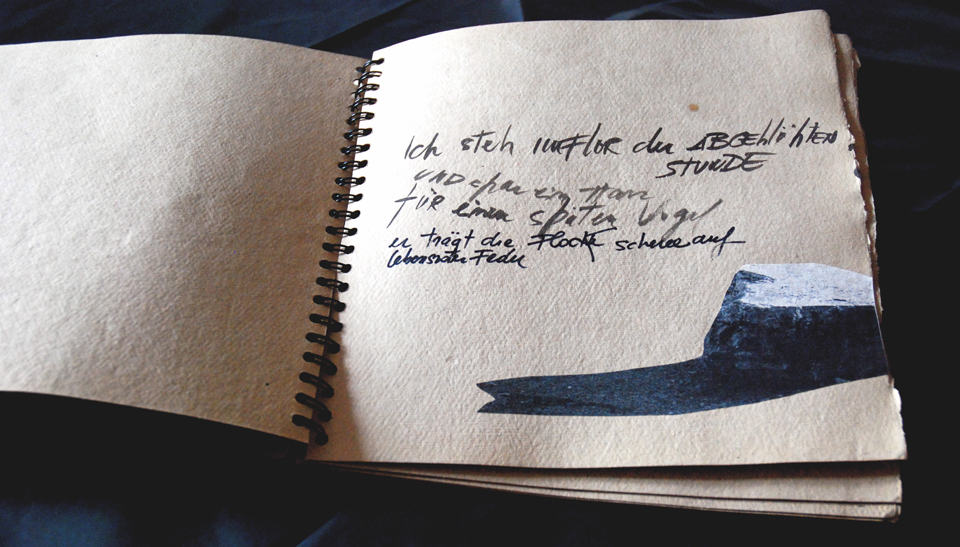 Ich steh im Flor der ABGEblühten
STUNDE
UND spar ein Harz
FÜR einen späten Vogel
er trägt die Flocke Schnee auf
lebensroter Feder